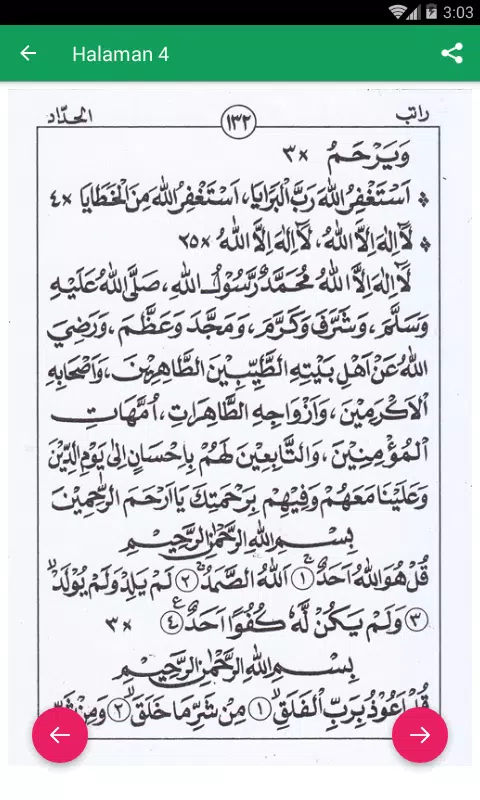 3:03
Halaman 4
راتب ١٣٢ الحدّاد
وَيَرْحَمُ ×٣
اَسْتَغْفِرُ اللهَ رَبَّ الْبَرَايَا، اَسْتَغْفِرُ اللهَ مِنَ الْخَطَايَا ×٤
لَآ اِلٰهَ اِلَّا اللهُ، لَآ اِلٰهَ اِلَّا اللهُ ×٢٥
لَآ اِلٰهَ اِلَّا اللهُ مُحَمَّدٌ رَّسُوْلُ اللهِ، صَلَّى اللهُ عَلَيْهِ
وَسَلَّمَ، وَشَرَّفَ وَكَرَّمَ، وَمَجَّدَ وَعَظَّمَ، وَرَضِيَ
اللهُ عَنْ اَهْلِ بَيْتِهِ الطَّيِّبِيْنَ الطَّاهِرِيْنَ، وَاَصْحَابِهِ
الْاَكْرَمِيْنَ، وَاَزْوَاجِهِ الطَّاهِرَاتِ، اُمَّهَاتِ
الْمُؤْمِنِيْنَ، وَالتَّابِعِيْنَ لَهُمْ بِاِحْسَانٍ اِلٰى يَوْمِ الدِّيْنَ
وَعَلَيْنَا مَعَهُمْ وَفِيْهِمْ بِرَحْمَتِكَ يَا اَرْحَمَ الرَّاحِمِيْنَ
بِسْمِ اللهِ الرَّحْمٰنِ الرَّحِيْمِ
قُلْ هُوَ اللهُ اَحَدٌ ۚ ١ اَللهُ الصَّمَدُ ۚ ٢ لَمْ يَلِدْ وَلَمْ يُوْلَدْ ۙ
٣ وَلَمْ يَكُنْ لَّهٗ كُفُوًا اَحَدٌ ࣖ ٤ ×٣
بِسْمِ اللهِ الرَّحْمٰنِ الرَّحِيْمِ
قُلْ اَعُوْذُ بِرَبِّ الْفَلَقِ ۙ ١ مِنْ شَرِّ مَا خَلَقَ ۙ ٢ وَمِنْ شَرِّ